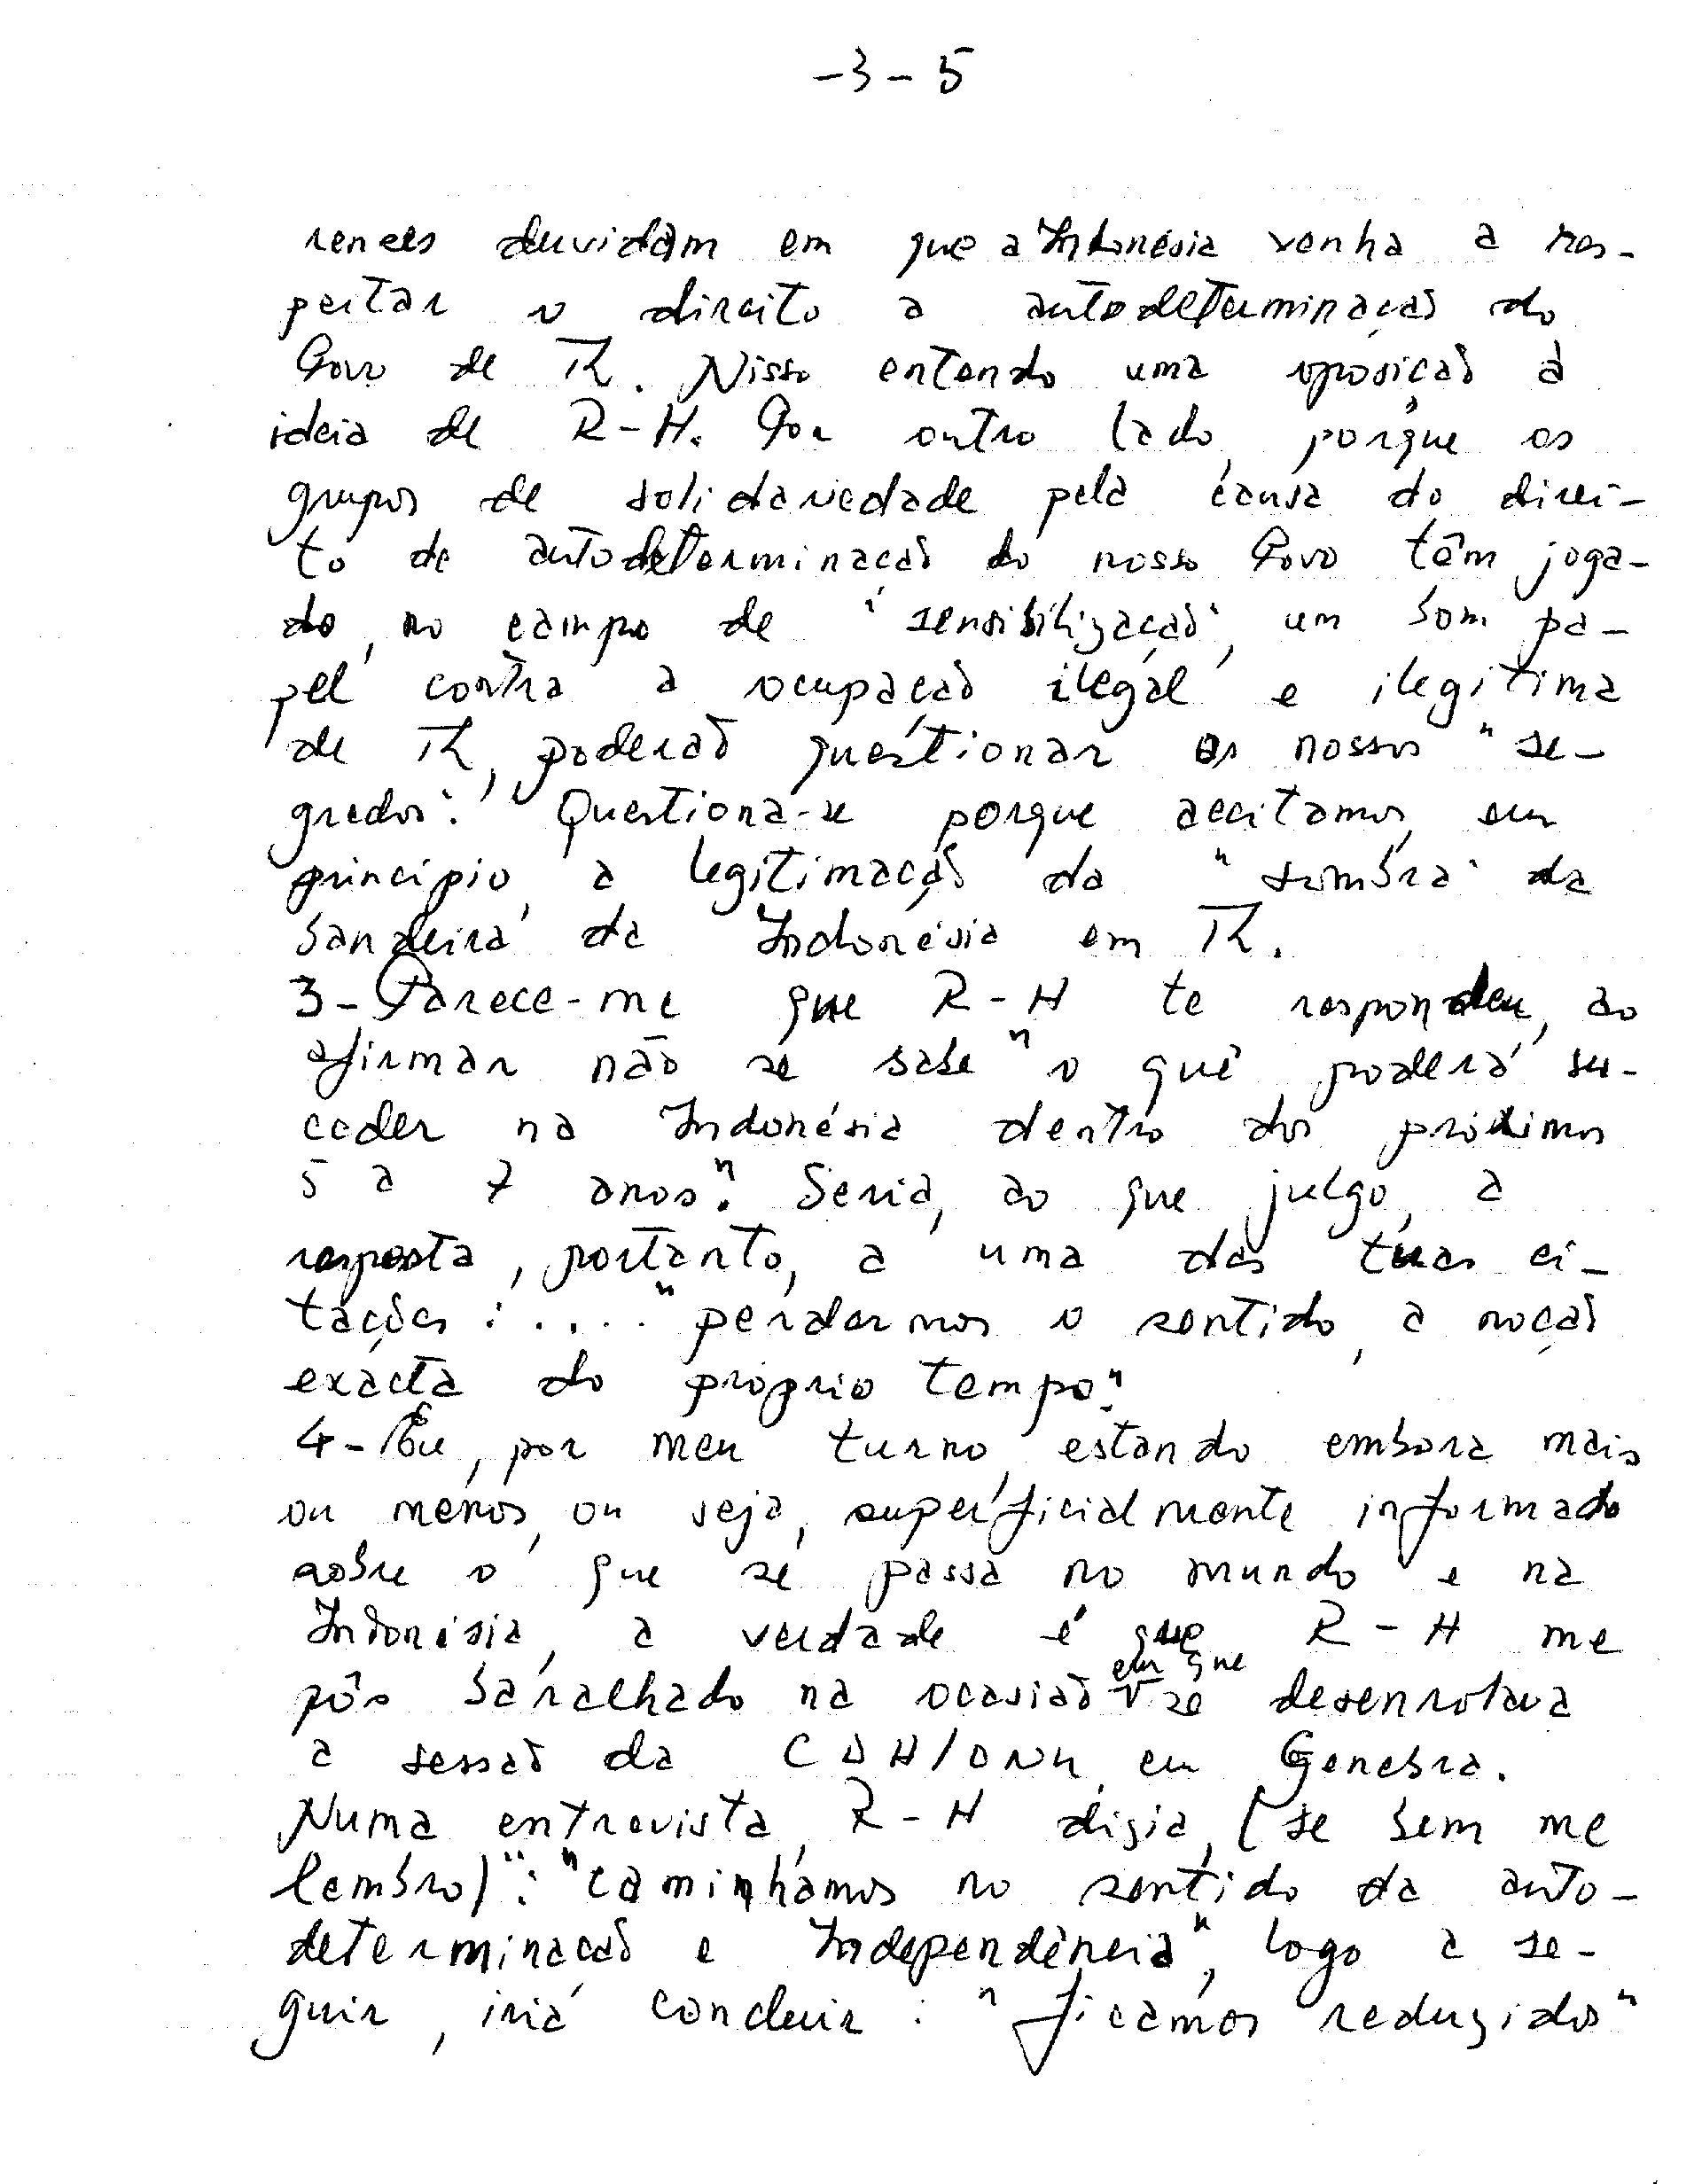 -3- 5
renses duvidam em que a Indonésia venha a res-
peitar o direito a autodeterminação do
Povo de TL. Nisso entendo uma oposição à
ideia de R-H. Por outro lado, porque os
grupos de solidariedade pela causa do direi-
to de autodeterminação do nosso Povo têm joga-
do, no campo de "sensibilização", um bom pa-
pel contra a ocupação ilegal e ilegítima
de TL, poderão questionar os nossos "se-
gredos". Questiona-se porque aceitamos, em
princípio, a legitimação da "sombra" da
bandeira da Indonésia em TL.
3- Parece-me que R-H te respondeu, ao
afirmar não se sabe "o que poderá su-
ceder na Indonésia dentro dos próximos
5 a 7 anos". Seria, ao que julgo, a
resposta, portanto, a uma das tuas ci-
tações: .... "perdermos o sentido, a noção
exacta do próprio tempo".
4- Eu, por meu turno, estando embora mais
ou menos, ou seja, superficialmente informado
sobre o que se passa no mundo e na
Indonésia, a verdade é que R-H me
pôs baralhado na ocasião em que se desenrolava
a sessão da CDH/ONU, em Genebra.
Numa entrevista, R-H dizia, (se bem me
lembro): "caminhamos no sentido da auto-
determinação e Independência", logo a se-
guir, iria concluir: "ficámos reduzidos"